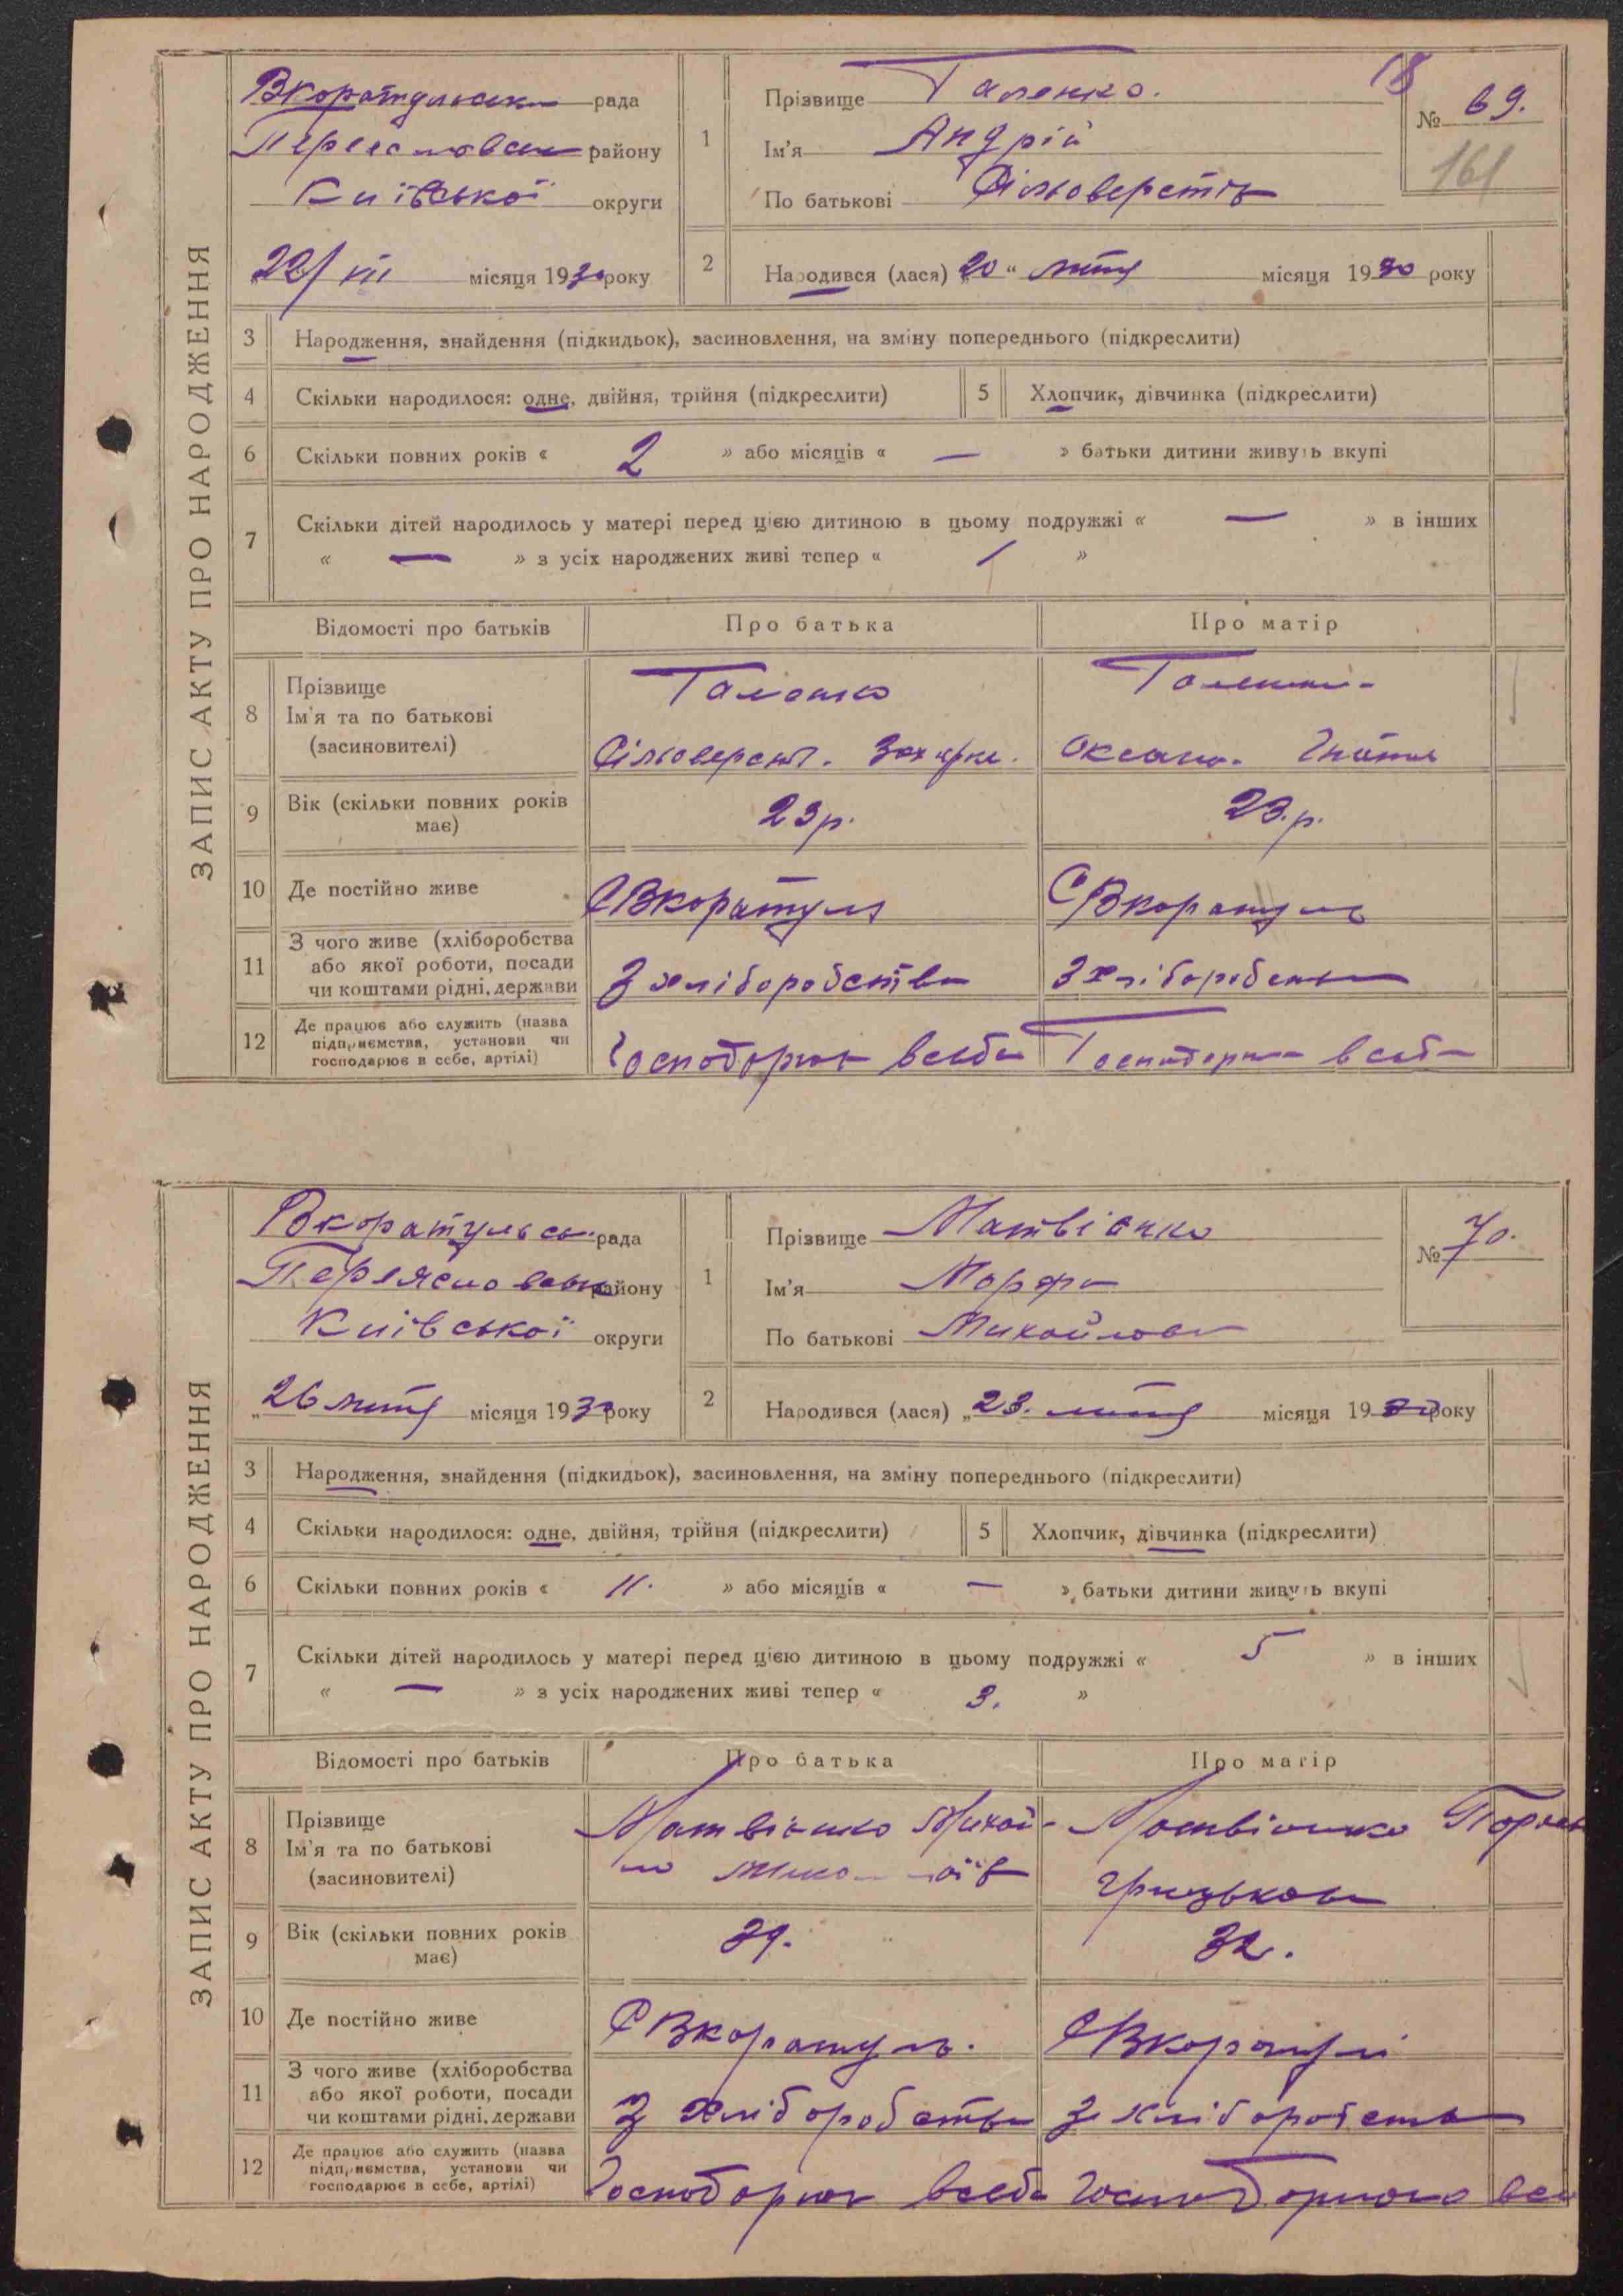 ЗАПИС АКТУ ПРО НАРОДЖЕННЯ
рада
Переяславськ району
Київської округи
22/VII місяця 1930 року
1 Прізвище Таленко.
Ім'я Андрій
По батькові Сільоверстів
18
№ 69.
161
2 Народився (лася) „20“ лют місяця 1930 року
3 Народження, знайдення (підкидьок), засиновлення, на зміну попереднього (підкреслити)
4 Скільки народилося: одне, двійня, трійня (підкреслити)
5 Хлопчик, дівчинка (підкреслити)
6 Скільки повних років « 2 » або місяців « — » батьки дитини живуть вкупі
7 Скільки дітей народилось у матері перед цією дитиною в цьому подружжі « — » в інших
« — » з усіх народжених живі тепер « 1 »
Відомості про батьків Про батька Про матір
8 Прізвище
Ім'я та по батькові
(засиновителі)
Таленко
Сільоверст.
Оксана.
9 Вік (скільки повних років має)
23р. 23.р.
10 Де постійно живе
С Вкоратуль С Вкоратуль
11 З чого живе (хліборобства
або якої роботи, посади
чи коштами рідні, держави
З хліборобства З хліборобства
12 Де працює або служить (назва
підприємства, установи чи
господарює в себе, артілі)
ЗАПИС АКТУ ПРО НАРОДЖЕННЯ
Вкоратульськ рада
Переяславськ району
Київської округи
„26 лют місяця 1930 року
1 Прізвище Матвієнко
Ім'я Марфа
По батькові Михайлова
№ 70.
2 Народився (лася) „23. лют місяця 1930 року
3 Народження, знайдення (підкидьок), засиновлення, на зміну попереднього (підкреслити)
4 Скільки народилося: одне, двійня, трійня (підкреслити)
5 Хлопчик, дівчинка (підкреслити)
6 Скільки повних років « 11. » або місяців « — » батьки дитини живуть вкупі
7 Скільки дітей народилось у матері перед цією дитиною в цьому подружжі « 5 » в інших
« — » з усіх народжених живі тепер « 3. »
Відомості про батьків Про батька Про матір
8 Прізвище
Ім'я та по батькові
(засиновителі)
Матвієнко Михай-
ло
Матвієнко
Грицькова
9 Вік (скільки повних років має)
39. 32.
10 Де постійно живе
С Вкоратуль. С Вкоратулі
11 З чого живе (хліборобства
або якої роботи, посади
чи коштами рідні, держави
З хліборобства З хліборобства
12 Де працює або служить (назва
підприємства, установи чи
господарює в себе, артілі)